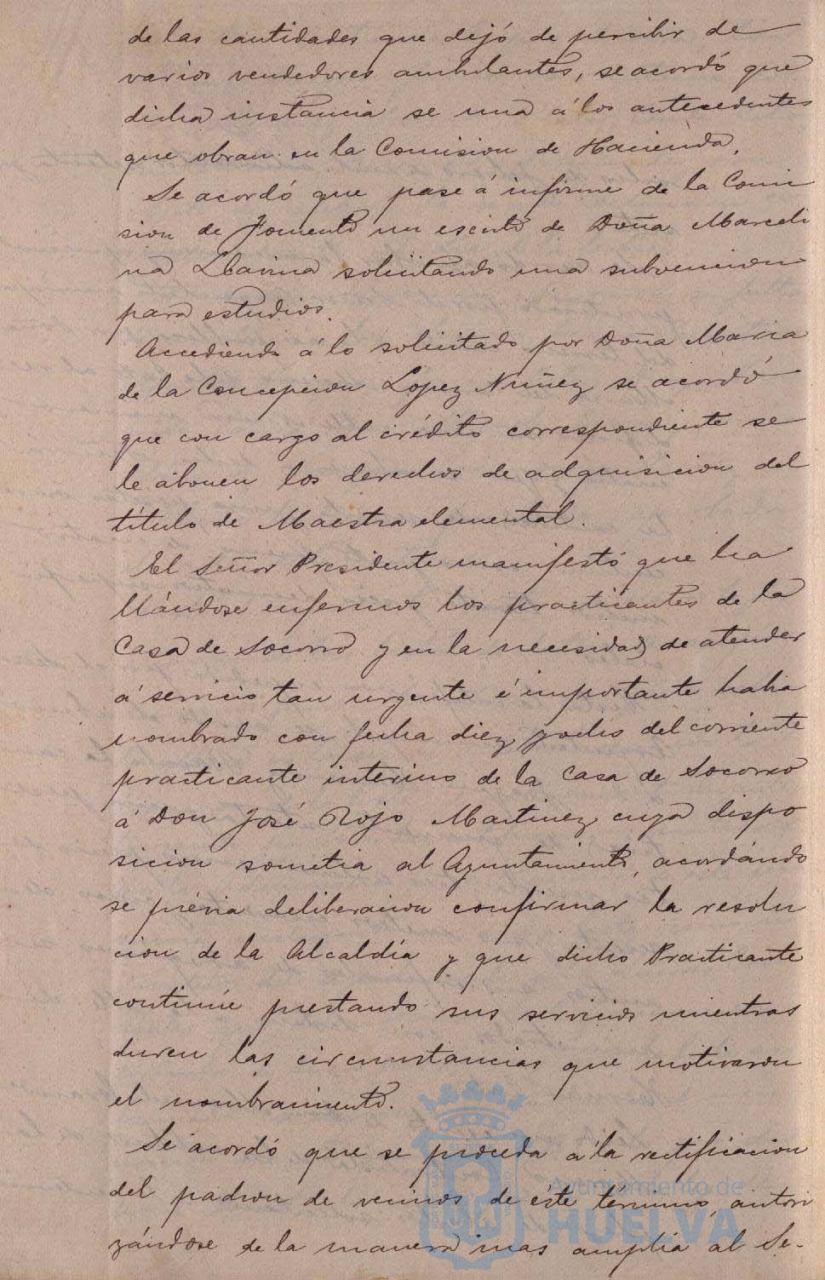 de las cantidades que dejó de percibir de
varios vendedores ambulantes, se acordó que
dicha instancia se una á los antecedentes
que obran en la Comision de Hacienda.
Se acordó que pase á informe de la Comi
sion de Fomento un escrito de Doña Marceli
na solicitando una subvencion
para estudios.
Accediendo á lo solicitado por Doña Maria
de la Concepcion Lopez Nuñez se acordó
que con cargo al crédito correspondiente se
le abonen los derechos de adquisicion del
título de Maestra elemental.
El Señor Presidente manifestó que ha
llándose enfermos los practicantes de la
Casa de Socorro y en la necesidad de atender
á servicio tan urgente é importante habia
nombrado con fecha diez y ocho del corriente
practicante interino de la Casa de Socorro
á Don José Rojo Martinez cuya dispo
sicion sometia al Ayuntamiento, acordándo
se prévia deliberacion confirmar la resolu
cion de la Alcaldía y que dicho Practicante
continúe prestando sus servicios mientras
duren las circunstancias que motivaron
el nombramiento.
Se acordó que se proceda á la rectificacion
del padron de vecinos de éste termino, autori
zándose de la manera mas amplia al Se-
Ayuntamiento de
HUELVA